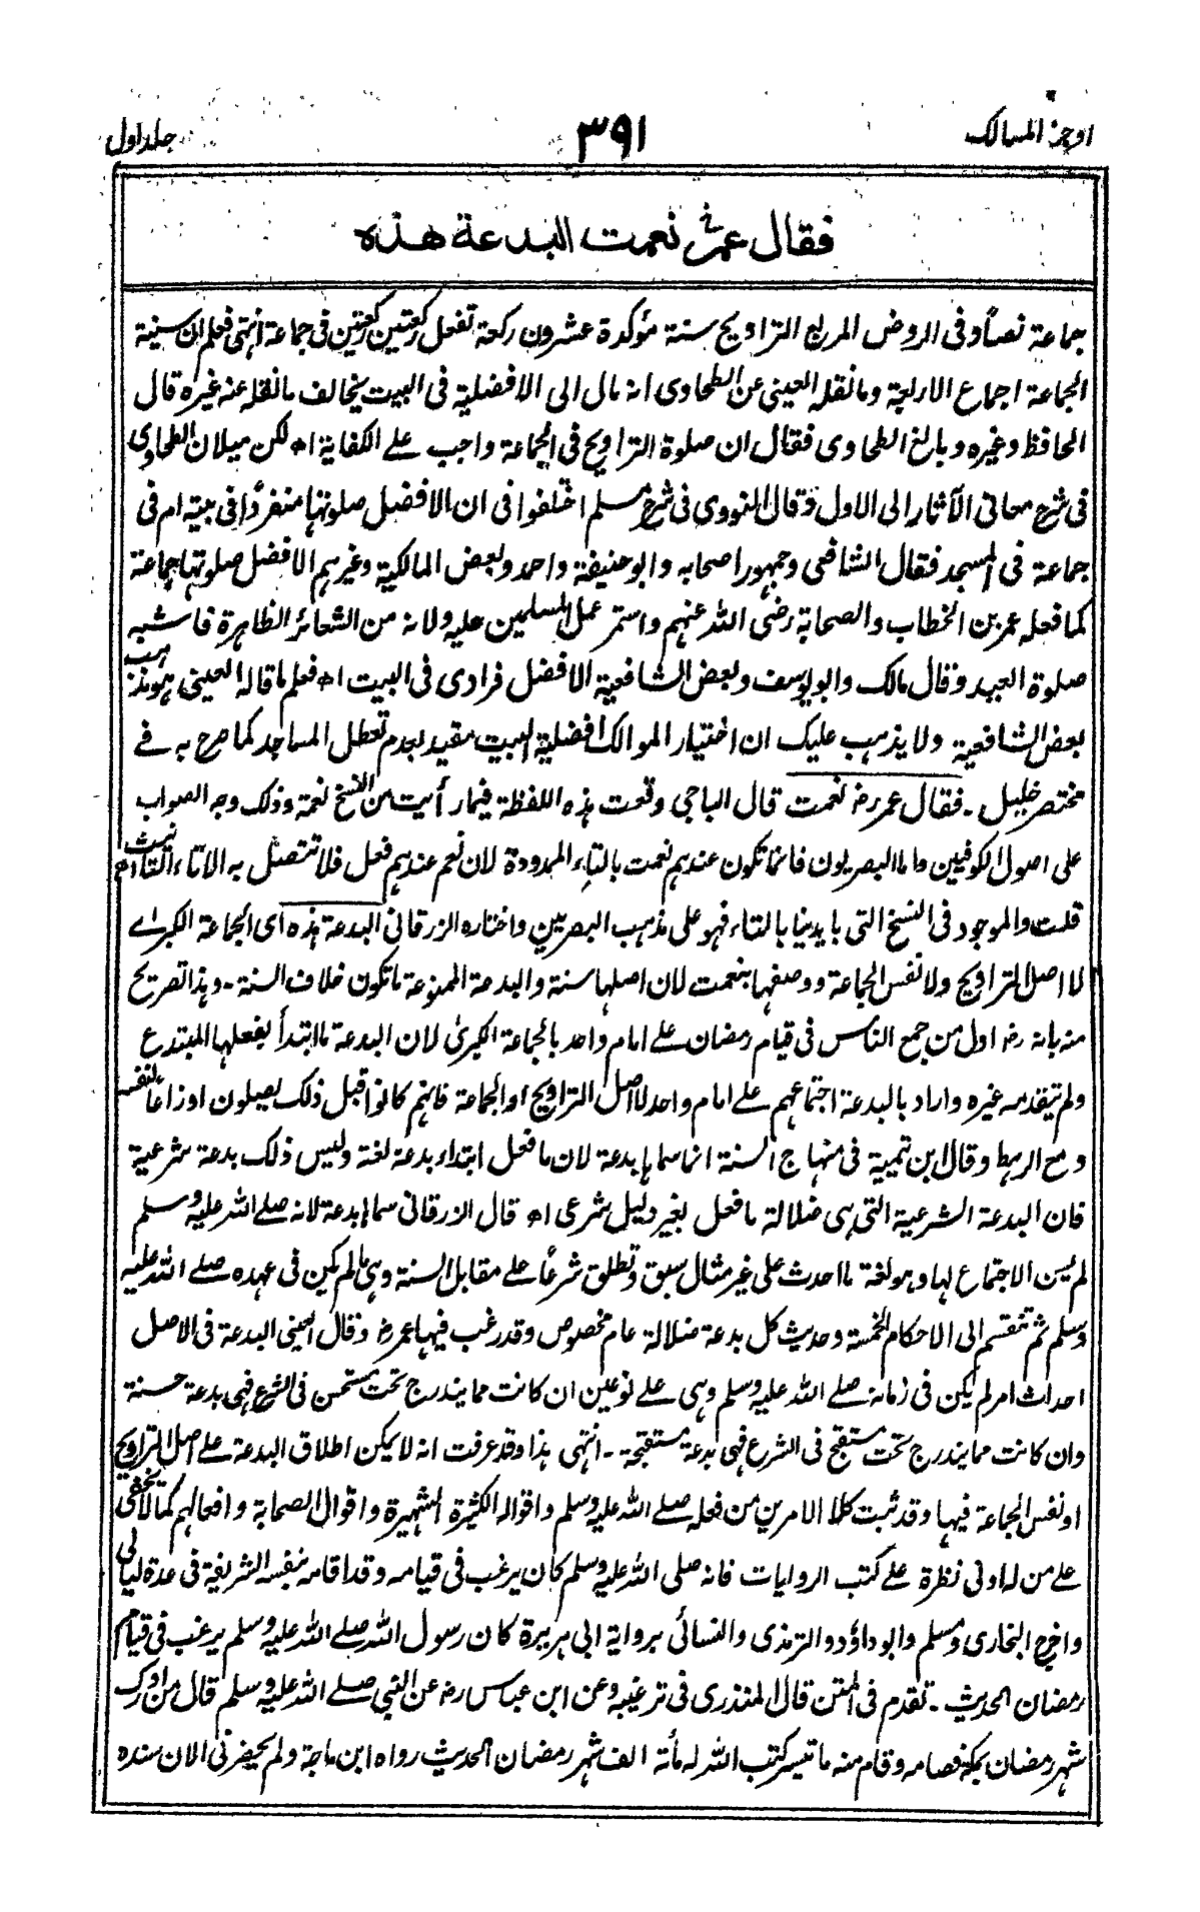 اوجز المسالك
٣٩١
جلد اول
فقال عمرؓ نعمت البدعة هذه
جماعة نصاً وفى الروض المربع التراويح سنة مؤكدة عشرون ركعة تفعل ركعتين ركعتين فى جماعة انتهى فعلم ان سنية
الجماعة اجماع الاربعة وما نقله العينى عن الطحاوى انه مال الى الافضلية فى البيت يخالف ما نقله عنه غيره قال
الحافظ وغيره وبالغ الطحاوى فقال ان صلوة التراويح فى الجماعة واجب على الكفاية اھ لكن ميلان الطحاوى
فى شرح معانى الآثار الى الاول وقال النووى فى شرح مسلم اختلفوا فى ان الافضل صلوتها منفرداً فى بيته ام فى
جماعة فى المسجد فقال الشافعى وجمهور اصحابه وابو حنيفة واحمد وبعض المالكية وغيرهم الافضل صلوتها جماعة
كما فعله عمر بن الخطاب والصحابة رضى الله عنهم واستمر عمل المسلمين عليه ولانه من الشعائر الظاهرة فاشبه
صلوة العيد وقال مالك وابو يوسف وبعض الشافعية الافضل فرادى فى البيت اھ فعلم ما قاله العينى هو مذهب
بعض الشافعية ولا يذهب عليك ان اختيار الموالك افضلية البيت مقيد بعدم تعطل المساجد كما صرح به فى
مختصر خليل ۔ فقال عمر رضـ نعمت قال الباجى وقعت هذه اللفظة فيما رأيت من النسخ نعمة وذلك وجه الصواب
على اصول الكوفيين واما البصريون فانما تكون عندهم نعمت بالتاء الممدودة لان نعم عندهم فعل فلا تتصل به الا تاء التانيث اھ
قلت والموجود فى النسخ التى بايدينا بالتاء فهو على مذهب البصريين واختاره الزرقانى البدعة هذه اى الجماعة الكبرى
لا اصل التراويح ولا نفس الجماعة ووصفها بنعمت لان اصلها سنة والبدعة الممنوعة ما تكون خلاف السنة ۔ وهذا تصريح
منه بانه رضـ اول من جمع الناس فى قيام رمضان على امام واحد بالجماعة الكبرىٰ لان البدعة ما ابتدأ بفعلها المبتدع
ولم يتقدمه غيره واراد بالبدعة اجتماعهم على امام واحد لا اصل التراويح او الجماعة فانهم كانوا قبل ذلك يصلون اوزاعاً لنفسه
ومع الرهط وقال ابن تيمية فى منهاج السنة انما سماها بدعة لان ما فعل ابتداء بدعة لغة وليس ذلك بدعة شرعية
فان البدعة الشرعية التى هى ضلالة ما فعل بغير دليل شرعى اھ قال الزرقانى سماها بدعة لانه صلى الله عليه وسلم
لم يسن الاجتماع لها وهو لغة ما احدث على غير مثال سبق وتطلق شرعاً على مقابل السنة وهى ما لم يكن فى عهده صلى الله عليه
وسلم ثم تنقسم الى الاحكام الخمسة وحديث كل بدعة ضلالة عام مخصوص وقد رغب فيها عمر رضـ وقال العينى البدعة فى الاصل
احداث امر لم يكن فى زمانه صلى الله عليه وسلم وهى على نوعين ان كانت مما يندرج تحت مستحسن فى الشرع فهى بدعة حسنة
وان كانت مما يندرج تحت مستقبح فى الشرع فهى بدعة مستقبحة ۔ انتهى هذا وقد عرفت انه لا يمكن اطلاق البدعة على اصل التراويح
او نفس الجماعة فيها وقد ثبت كلا الامرين من فعله صلى الله عليه وسلم واقواله الكثيرة الشهيرة واقوال الصحابة وافعالهم كما لا يخفى
على من له ادنى نظرة على كتب الروايات فانه صلى الله عليه وسلم كان يرغب فى قيامه وقد اقامه بنفسه الشريفة فى عدة ليالى
واخرج البخارى ومسلم وابو داؤد والترمذى والنسائى برواية ابى هريرة كان رسول الله صلى الله عليه وسلم يرغب فى قيام
رمضان الحديث ۔ تقدم فى المتن قال المنذرى فى ترغيبه وعن ابن عباس رضـ عن النبى صلى الله عليه وسلم قال من ادرك
شهر رمضان بمكة فصامه وقام منه ما تيسر كتب الله له مأة الف شهر رمضان الحديث رواه ابن ماجة ولم يحضرنى الان سنده